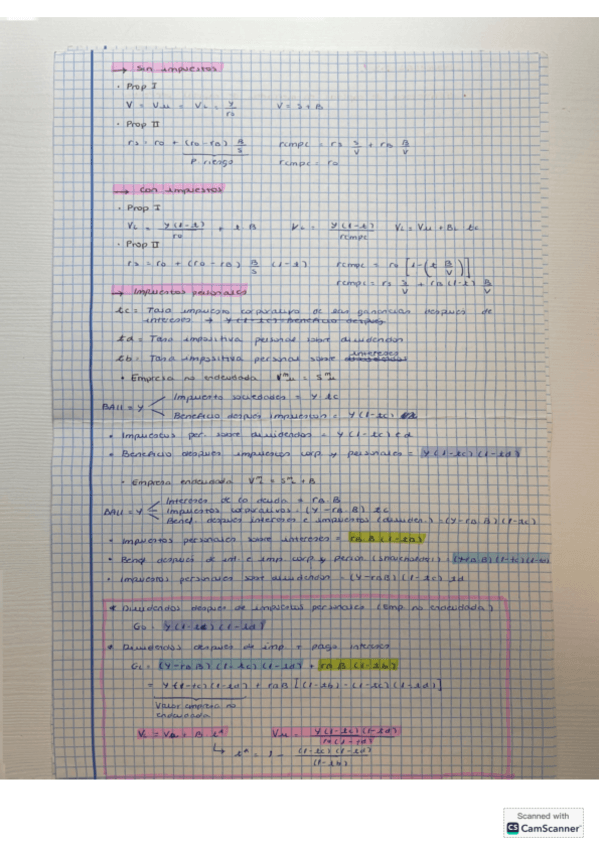 → Sin impuestos
· Prop I
V = Vu = VL = Y/ro    V = S + B
· Prop II
rs = ro + (ro - rB) B/S    rcmpc = rs S/V + rB B/V
P. riesgo    rcmpc = ro
→ Con impuestos
· Prop I
VL = Y(1-t)/ro + t B    VL = Y(1-t)/rcmpc    VL = Vu + BL tc
· Prop II
rs = ro + (ro - rB) B/S (1-t)    rcmpc = ro [1-(t B/V)]
rcmpc = rs S/V + rB (1-t) B/V
→ Impuestos personales
tc = Tasa impuesto corporativo de las ganancias después de
intereses → Y(1-tc) = Beneficio después
td = Tasa impositiva personal sobre dividendos
tb = Tasa impositiva personal sobre intereses
· Empresa no endeudada    Vu = Su
BAII = Y
Impuesto sociedades = Y tc
Beneficio después impuestos = Y(1-tc)
· Impuestos per. sobre dividendos = Y(1-tc) td
· Beneficio después impuestos corp y personales = Y(1-tc)(1-td)
· Empresa endeudada    VL = SL + B
BAII = Y
Intereses de la deuda = rB B
Impuestos corporativos = (Y - rB B) tc
Benef. después intereses e impuestos (dividen.) = (Y - rB B)(1-tc)
· Impuestos personales sobre intereses = rB B (1-tb)
· Benef después de int. e imp. corp y person (shareholders) = (Y-rB B)(1-tc)(1-td)
· Impuestos personales sobre dividendos = (Y-rB B)(1-tc) td
* Dividendos después de impuestos personales (Emp no endeudada)
Gu = Y(1-tc)(1-td)
* Dividendos después de imp + pago intereses
GL = (Y-rB B)(1-tc)(1-td) + rB B (1-tb)
= Y(1-tc)(1-td) + rB B [(1-tb) - (1-tc)(1-td)]
Valor empresa no
endeudada
VL = Vu + B · t*    Vu = Y(1-tc)(1-td)/ro(1-td)
↳ t* = 1 - (1-tc)(1-td)/(1-tb)
Scanned with
CS CamScanner